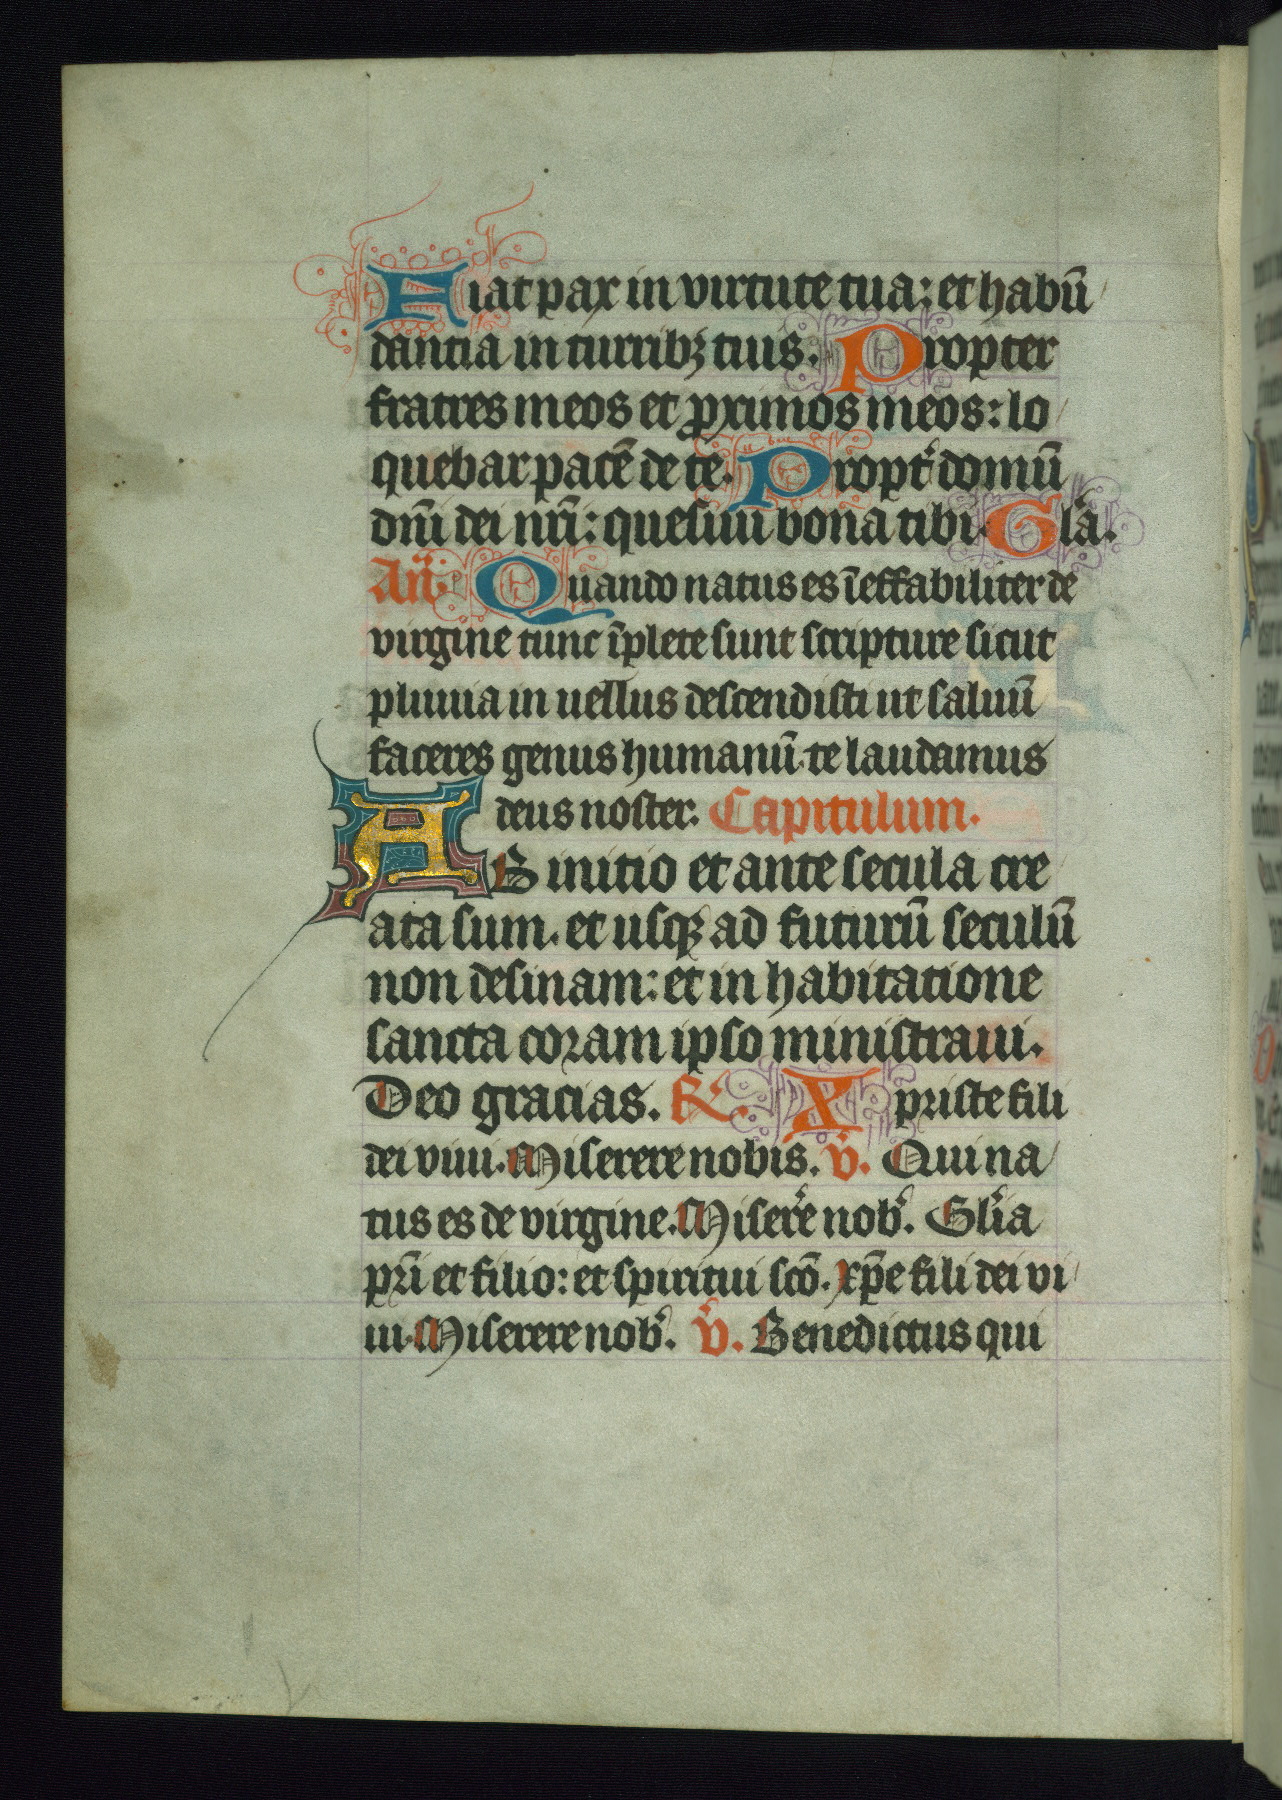 Fiat pax in virtute tua: et habū
dantia in turribꝫ tuis. Propter
fratres meos et ꝓximos meos: lo
quebar pacē de te. Propt᾽ domū
dn̄i dei nr̄i: quesiui bona tibi. Gl᾽a.
An̄. Quando natus es īeffabiliter de
virgine tunc īplete sunt scripture sicut
pluuia in uellus descendisti ut saluū
faceres genus humanū te laudamus
deus noster. Capitulum.
AB initio et ante secula cre
ata sum. et usqꝫ ad futurū seculū
non desinam: et in habitatione
sancta coram ipso ministraui.
Deo gracias. R᾽. Xpriste fili
dei viui. Miserere nobis. v̄. Qui na
tus es de virgine. Miser᾽e nob᾽. Gl᾽ia
pr̄i et filio: et spiritui scō. xp̄e fili dei vi
ui. Miserere nob᾽. v᾽. Benedictus qui